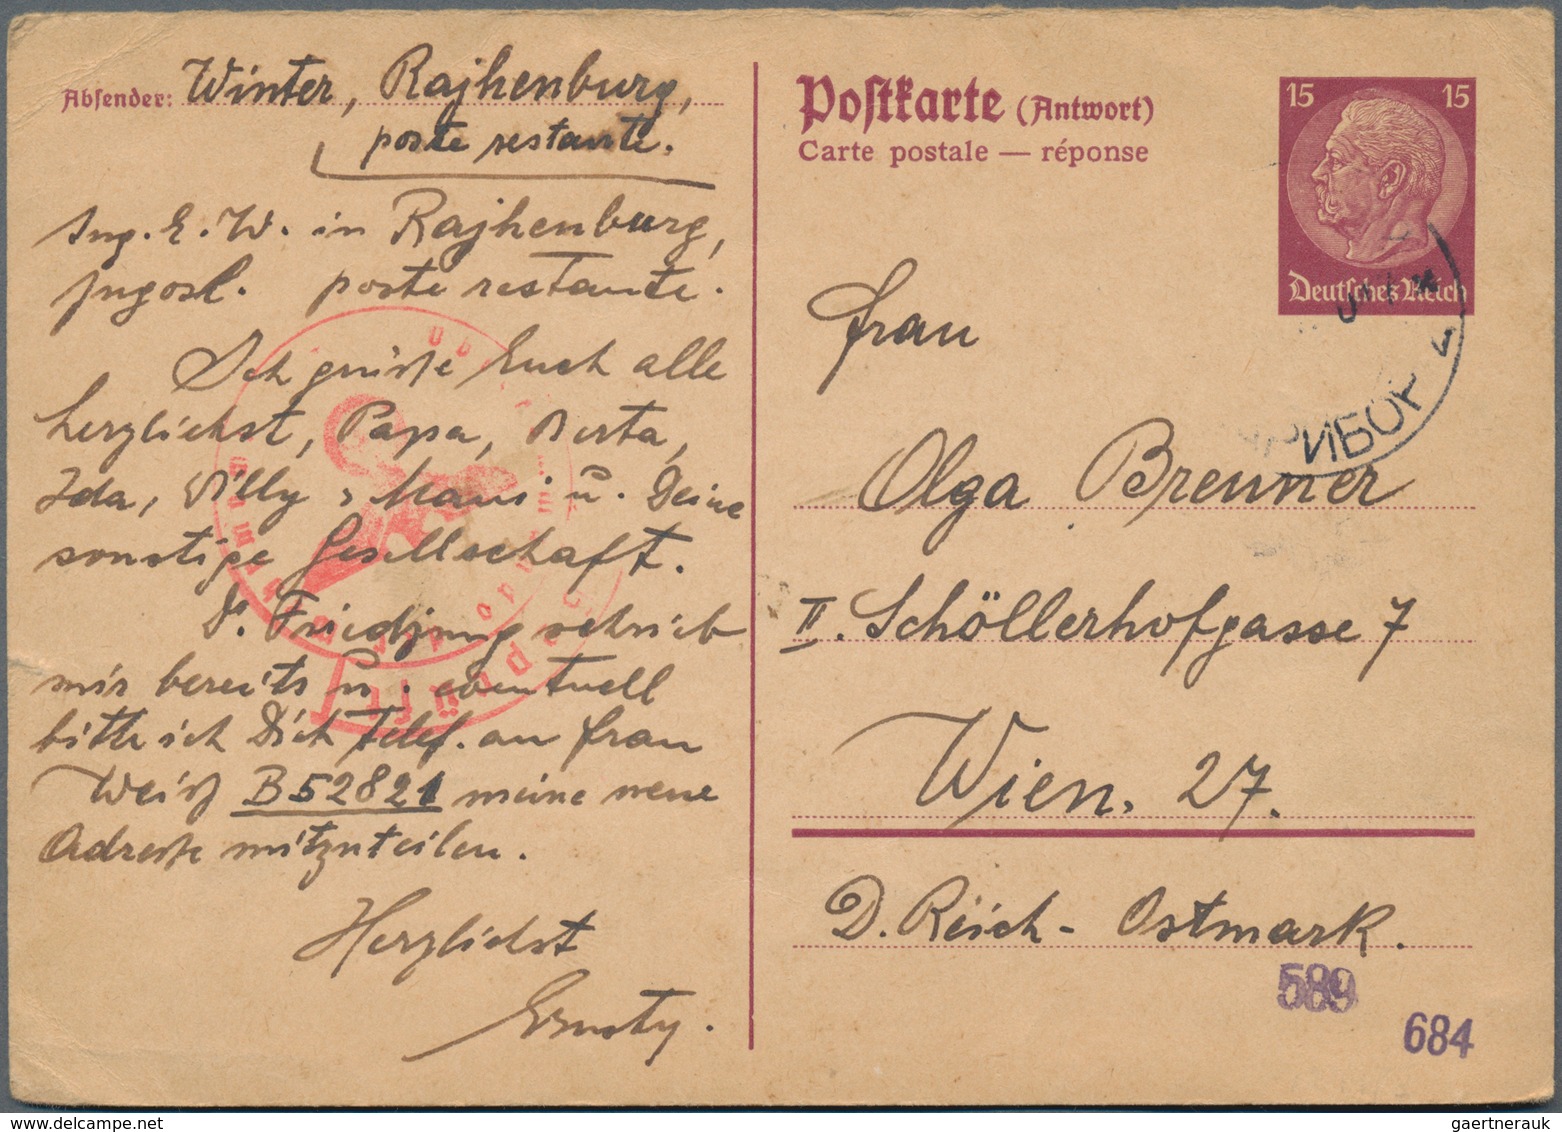 Absender: Winter, Rajhenburg,
poste restante.
Ing. E. W. in Rajhenburg,
jugosl. poste restante.
Ich grüße Euch alle
herzlichst, Papa, Berta,
Ida, Willy, Mani u. Deine
sonstige Gesellschaft.
Dr. Friedjung schrieb
mir bereits u. eventuell
bitte ich Dich telef. an Frau
Weiß B52821 meine neue
Adresse mitzuteilen.
Herzlichst
Ernsty.
Postkarte (Antwort)
Carte postale — réponse
15 15
Deutsches Reich
Frau
Olga Brenner
II. Schöllerhofgasse 7
Wien. 27.
D. Reich - Ostmark.
589
684
gaertnerauk